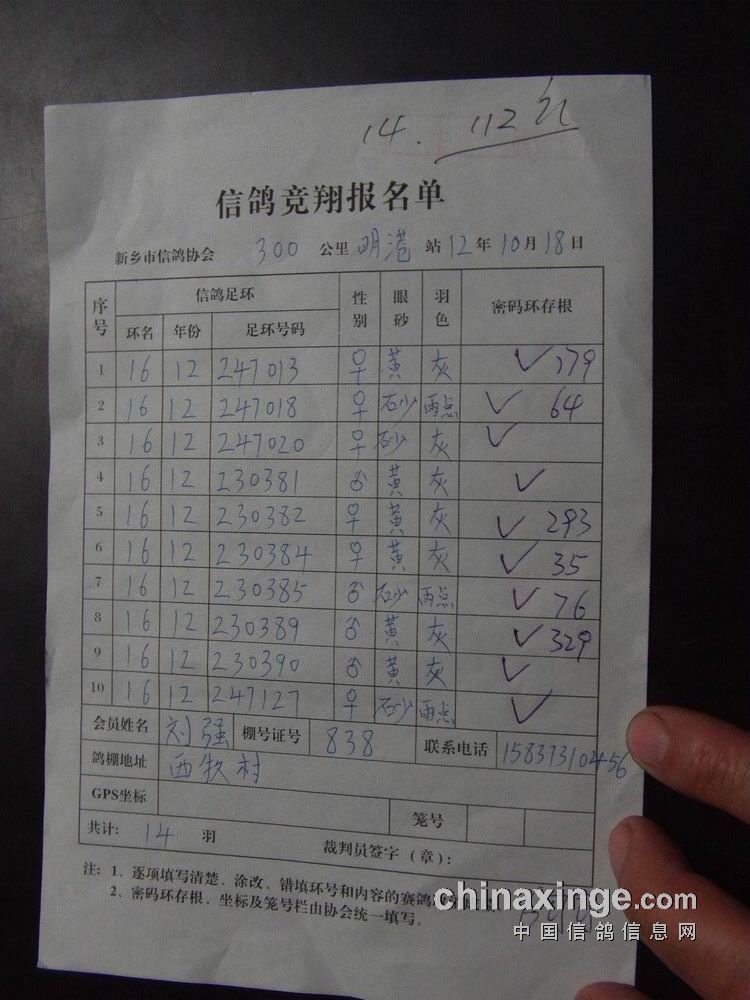 14. 112元
信鸽竞翔报名单
新乡市信鸽协会 300 公里 明港 站 12年 10月 18日
序号 信鸽足环 性别 眼砂 羽色 密码环存根
环名 年份 足环号码
1 16 12 247013 ♀ 黄 灰 ✓ 179
2 16 12 247018 ♀ 砂 雨点 ✓ 64
3 16 12 247020 ♀ 砂 灰 ✓
4 16 12 230381 ♂ 黄 灰 ✓
5 16 12 230382 ♀ 黄 灰 ✓ 293
6 16 12 230384 ♀ 黄 灰 ✓ 35
7 16 12 230385 ♂ 砂 雨点 ✓ 76
8 16 12 230389 ♂ 黄 灰 ✓ 329
9 16 12 230390 ♂ 黄 灰 ✓
10 16 12 247127 ♀ 砂 雨点 ✓
会员姓名 刘强 棚号证号 838 联系电话 15837310456
鸽棚地址 西牧村
GPS坐标 笼号
共计: 14 羽 裁判员签字(章):
注: 1、逐项填写清楚、涂改、错填环号和内容的赛鸽
2、密码环存根、坐标及笼号栏由协会统一填写。
chinaxinge.com
中国信鸽信息网